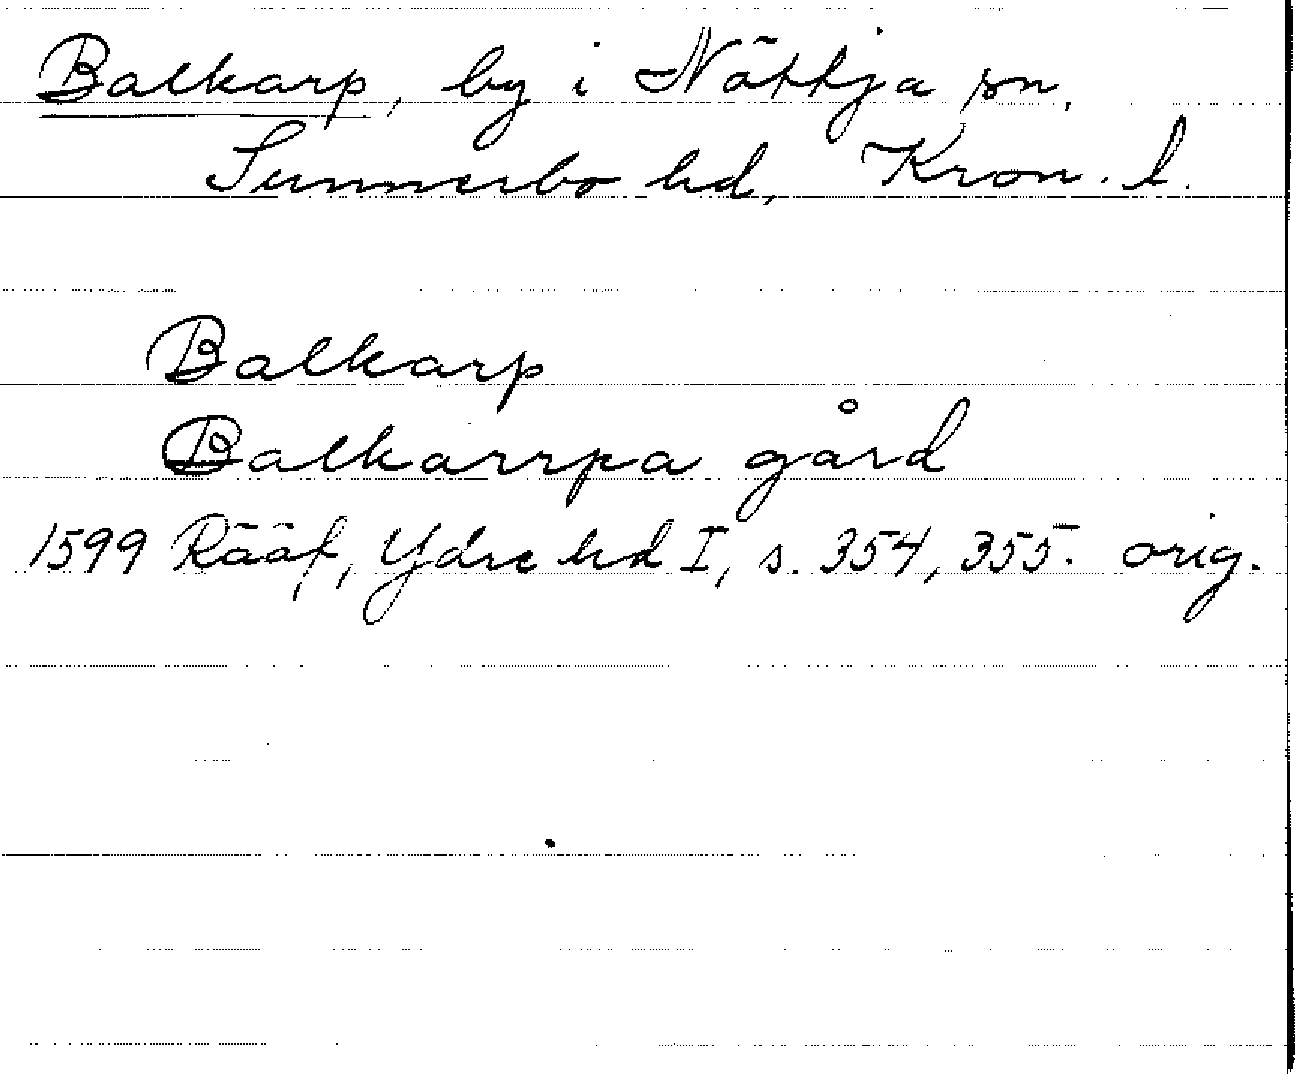 Balkarp, by i Nöttja sn,
Sunnerbo hd, Kron. l.
Balkarp
Balkarrpa gård
1599 Rääf, Ydre hd I, s. 354, 355. orig.